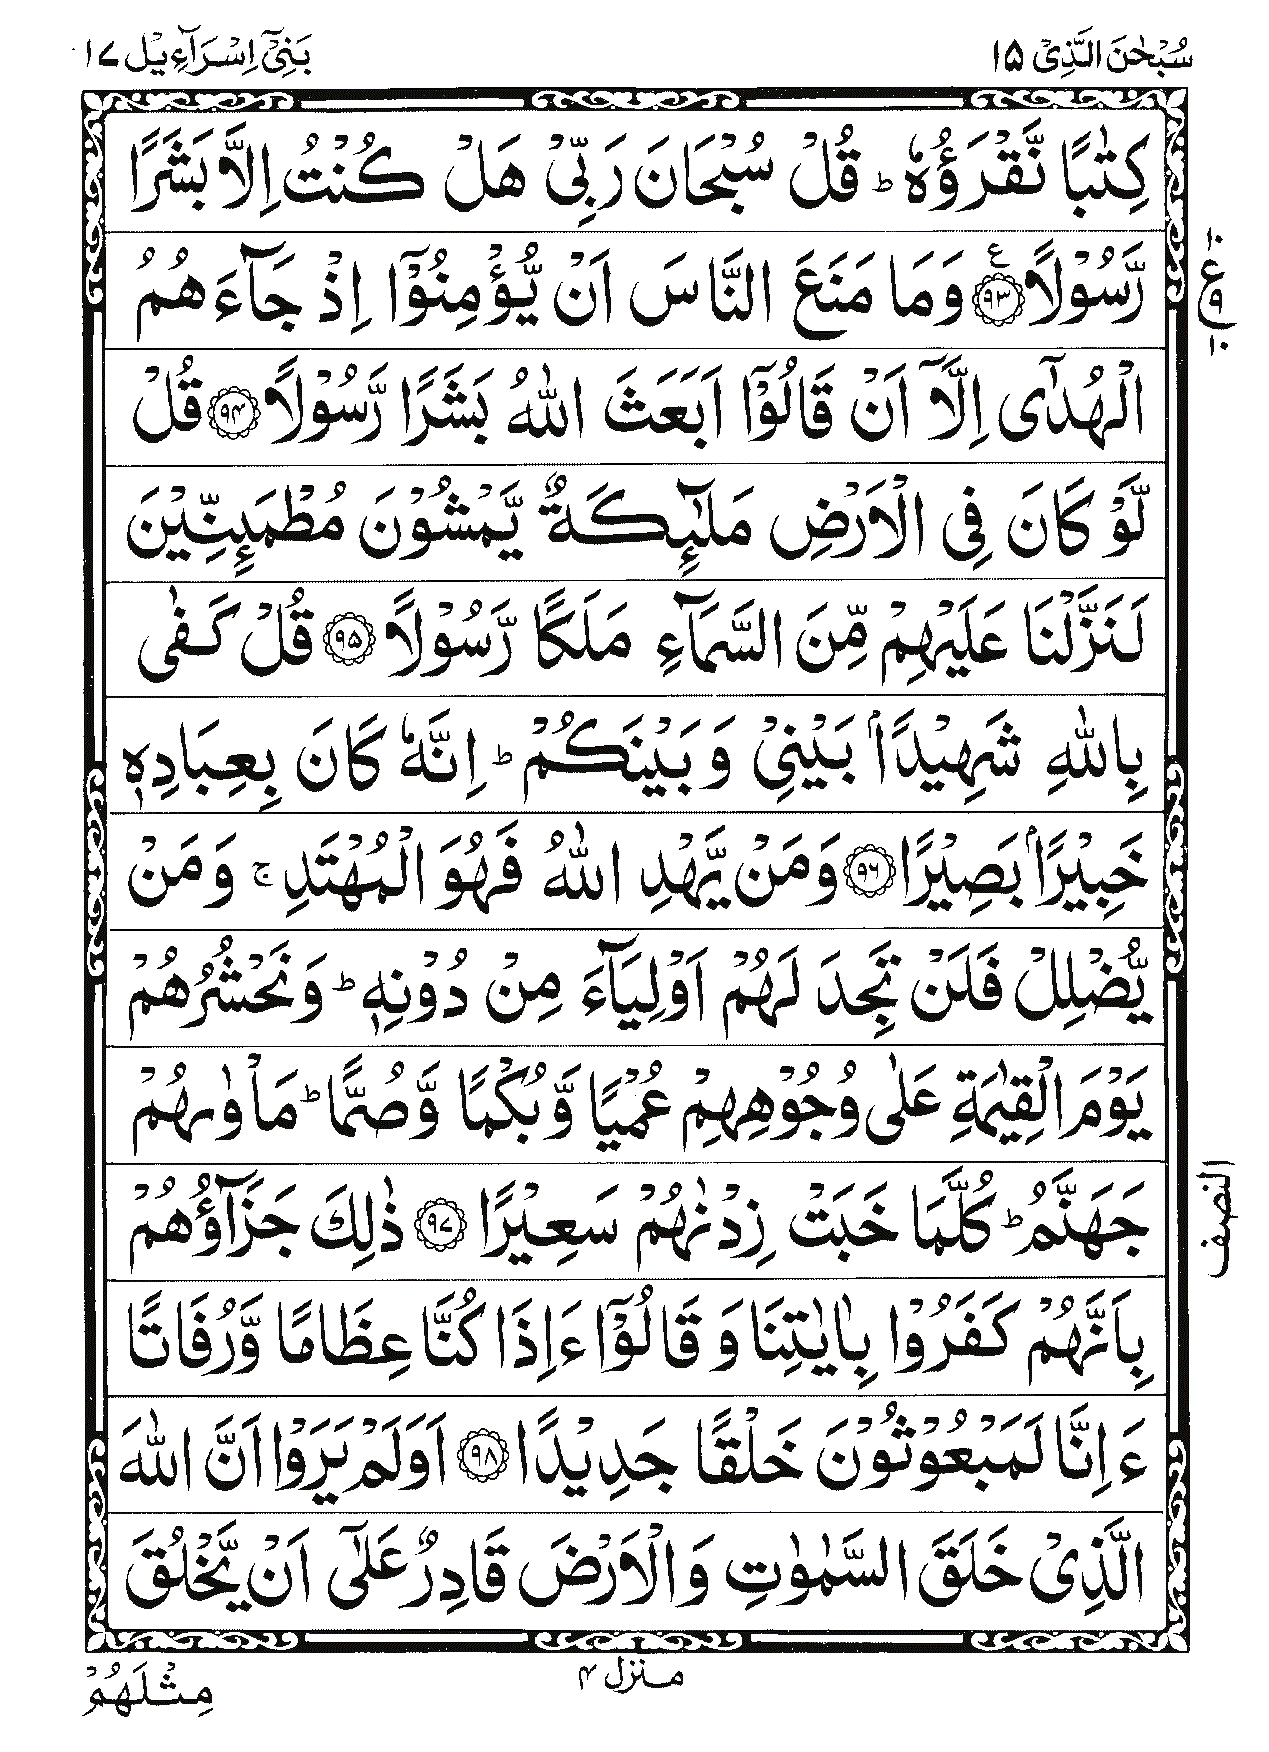 سُبْحٰنَ الَّذِیْۤ ۱۵
بَنِیْۤ اِسْرَآءِیْل ۱۷
كِتٰبًا نَّقْرَؤُهٗ ؕ قُلْ سُبْحَانَ رَبِّیْ هَلْ كُنْتُ اِلَّا بَشَرًا
رَّسُوْلًا ﴿۹۳﴾ ع وَمَا مَنَعَ النَّاسَ اَنْ یُّؤْمِنُوْۤا اِذْ جَآءَهُمُ
۱۰ ع ۹ ۱۰
الْهُدٰۤی اِلَّاۤ اَنْ قَالُوْۤا اَبَعَثَ اللّٰهُ بَشَرًا رَّسُوْلًا ﴿۹۴﴾ قُلْ
لَّوْ كَانَ فِی الْاَرْضِ مَلٰٓىِٕكَةٌ یَّمْشُوْنَ مُطْمَىِٕنِّیْنَ
لَنَزَّلْنَا عَلَیْهِمْ مِّنَ السَّمَآءِ مَلَكًا رَّسُوْلًا ﴿۹۵﴾ قُلْ كَفٰی
بِاللّٰهِ شَهِیْدًۢا بَیْنِیْ وَبَیْنَكُمْ ؕ اِنَّهٗ كَانَ بِعِبَادِهٖ
خَبِیْرًۢا بَصِیْرًا ﴿۹۶﴾ وَمَنْ یَّهْدِ اللّٰهُ فَهُوَ الْمُهْتَدِ ۚ وَمَنْ
یُّضْلِلْ فَلَنْ تَجِدَ لَهُمْ اَوْلِیَآءَ مِنْ دُوْنِهٖ ؕ وَنَحْشُرُهُمْ
یَوْمَ الْقِیٰمَةِ عَلٰی وُجُوْهِهِمْ عُمْیًا وَّبُكْمًا وَّصُمًّا ؕ مَاْوٰىهُمْ
جَهَنَّمُ ؕ كُلَّمَا خَبَتْ زِدْنٰهُمْ سَعِیْرًا ﴿۹۷﴾ ذٰلِكَ جَزَآؤُهُمْ
النصف
بِاَنَّهُمْ كَفَرُوْا بِاٰیٰتِنَا وَقَالُوْۤا ءَاِذَا كُنَّا عِظَامًا وَّرُفَاتًا
ءَاِنَّا لَمَبْعُوْثُوْنَ خَلْقًا جَدِیْدًا ﴿۹۸﴾ اَوَلَمْ یَرَوْا اَنَّ اللّٰهَ
الَّذِیْ خَلَقَ السَّمٰوٰتِ وَالْاَرْضَ قَادِرٌ عَلٰۤی اَنْ یَّخْلُقَ
منزل ۴
مِثْلَهُمْ